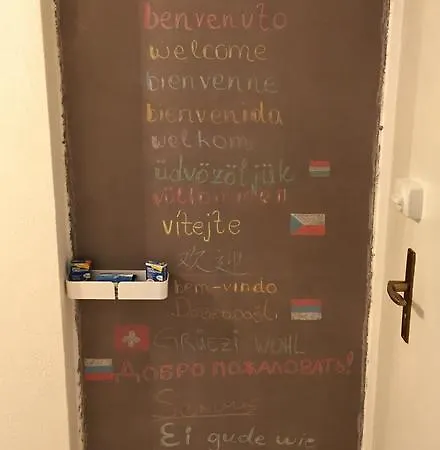 benvenuto
welcome
bienvenne
bienvenida
welkom
üdvözöljük
vítejte
欢迎
bem-vindo
GRÜEZI WOHL
ДОБРО ПОЖАЛОВАТЬ!
Ei gude wie